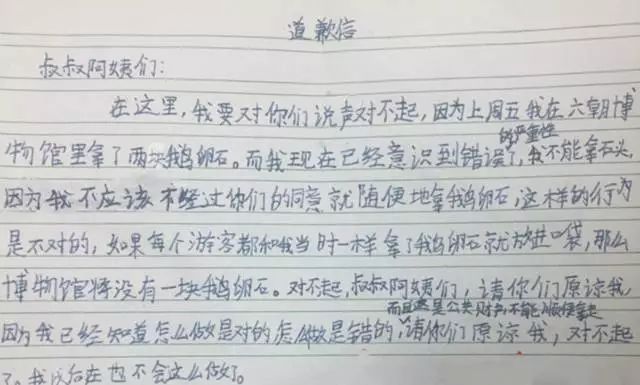 道歉信
叔叔阿姨们:
在这里,我要对你们说声对不起,因为上周五我在六朝博
物馆里拿了两块鹅卵石。而我现在已经意识到错误的严重性了,我不能拿石头,
因为我不应该不经过你们的同意就随便地拿鹅卵石,这样的行为
是不对的,如果每个游客都和我当时一样拿了鹅卵石就放进口袋,那么
博物馆将没有一块鹅卵石。对不起,叔叔阿姨们,请你们原谅我
而且这是公共财产,不能顺便拿走
因为我已经知道怎么做是对的怎么做是错的,请你们原谅我,对不起
了。我以后在也不会这么做了。